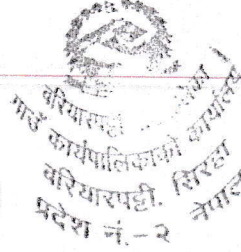 बरियारपट्टी
गाउँ कार्यपालिकाको कार्यालय
बरियारपट्टी, सिरहा
प्रदेश नं.-२ नेपाल